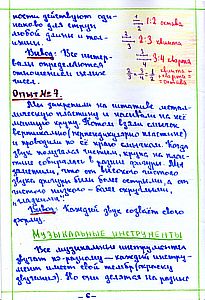 ности действуют оди-
наково для струн
любой длины и тол-
щины.
Вывод: Все интер-
валы определяются
отношением целых
чисел.
1:2 октава
2:3 квинта
3:4 кварта
квинта +
кварта =
октава
Опыт № 7.
Мы закрепили на штативе метал-
лическую пластину и насыпали на неё
манную крупу. Потом взяли смычок
вертикально (перпендикулярно пластине)
и проводили по её краю смычком. Когда
звук получался чистый, крупа на плас-
тине собиралась в разные фигуры. Мы
заметили, что от высокого чистого
звука фигуры были более острыми, а от
чистого низкого – более округлыми,
"гладкими".
Вывод: Каждый звук создаёт свою
форму.
Музыкальные инструменты
Все музыкальные инструменты
звучат по-разному – каждый инстру-
мент имеет свой тембр (окраску
звучания). Но они делятся на разные
- 6 -